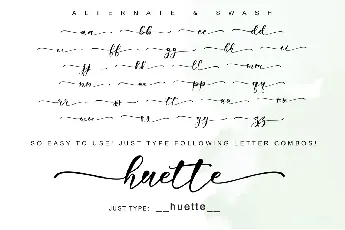 ALTERNATE & SWASH
aa bb cc dd
ee ff gg hh ii
jj kk ll mm
nn oo pp qq
rr ss tt uu vv
ww xx yy zz
SO EASY TO USE! JUST TYPE FOLLOWING LETTER COMBOS!
huette
JUST TYPE: __huette__